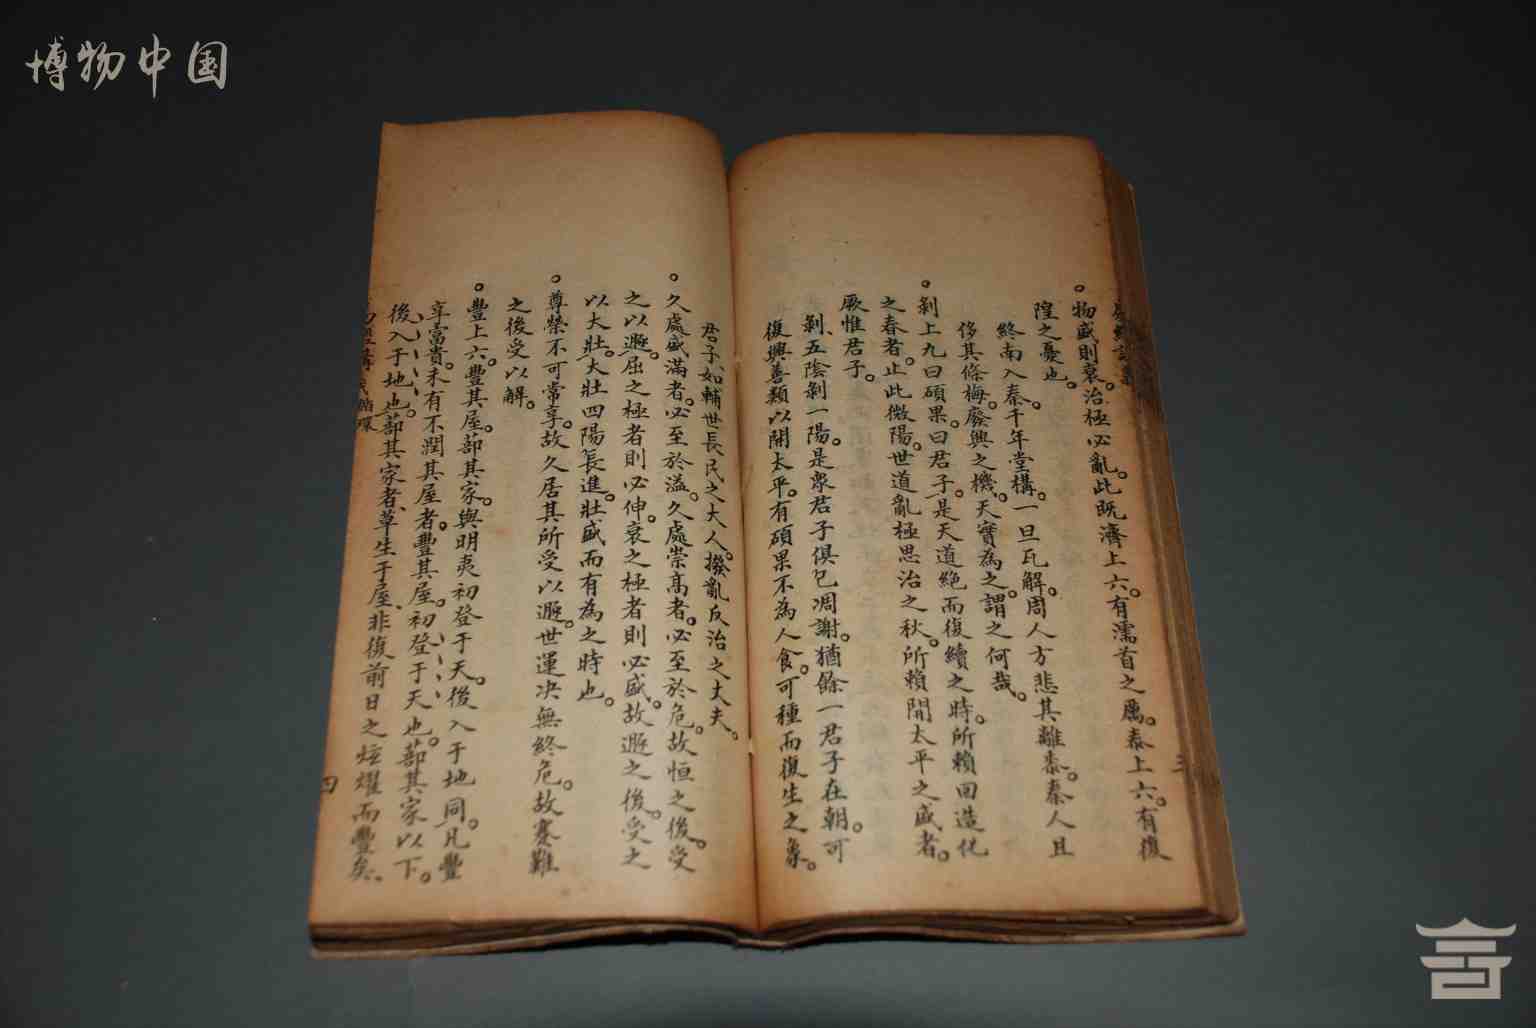 博物中国
。物盛則衰。治極必亂。此既濟上六。有濡首之厲。泰上六。有復
隍之憂也。
終南入秦。千年堂構。一旦瓦解。周人方悲其離黍。秦人且
侈其條梅。廢興之機。天實為之。謂之何哉。
。剝上九曰碩果。曰君子。是天道絕而復續之時。所賴回造化
之春者。止此微陽。世道亂極思治之秋。所賴開太平之盛者。
厥惟君子。
剝、五陰剝一陽。是衆君子俱已凋謝。猶餘一君子在朝。可
復興善類以開太平。有碩果不為人食。可種而復生之象。
君子、如輔世長民之大人。撥亂反治之丈夫。
。久處盛滿者。必至於溢。久處崇高者。必至於危。故恒之後。受
之以遯。屈之極者則必伸。衰之極者則必盛。故遯之後。受之
以大壯。大壯四陽長進。壯盛而有為之時也。
。尊榮不可常享。故久居其所受以遯。世運决無終危。故蹇難
之後受以解。
。豐上六。豐其屋。蔀其家。與明夷初登于天。後入于地同。凡豐
享富貴。未有不潤其屋者。豐其屋。初登于天也。蔀其家以下。
後入于地也。蔀其家者、草生于屋、非復前日之炫耀而豐矣。
四